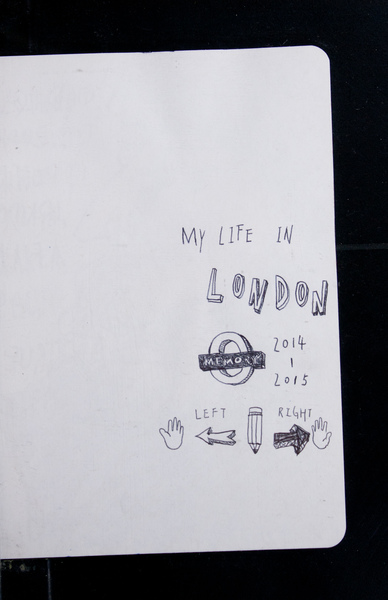 MY LIFE IN
LONDON
MEMORY
2014
|
2015
LEFT RIGHT